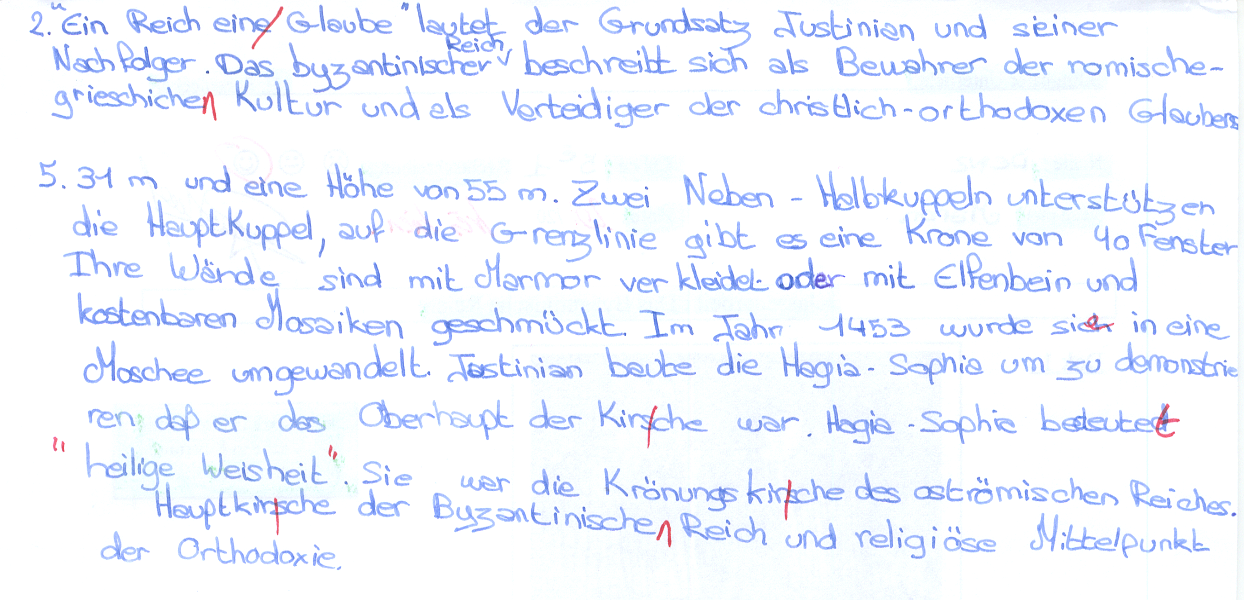 2. "Ein Reich eine Glaube" lautet der Grundsatz Justinian und seiner
Nachfolger. Das byzantinischer Reich beschreibt sich als Bewahrer der romische-
grieschichen Kultur und als Verteidiger der christlich-orthodoxen Glaubens
5. 31 m und eine Höhe von 55 m. Zwei Neben - Halbkuppeln unterstützen
die Hauptkuppel, auf die Grenzlinie gibt es eine Krone von 40 Fenster
Ihre Wände sind mit Marmor verkleidet oder mit Elfenbein und
kostenbaren Mosaiken geschmückt. Im Jahr 1453 wurde sie in eine
Moschee umgewandelt. Justinian baute die Hagia-Sophia um zu demonstrie
ren, daß er das Oberhaupt der Kirsche war. Hagia-Sophia bedeutet
"heilige Weisheit". Sie war die Krönungskirsche des oströmischen Reiches.
Hauptkirsche der Byzantinischen Reich und religiöse Mittelpunkt
der Orthodoxie.